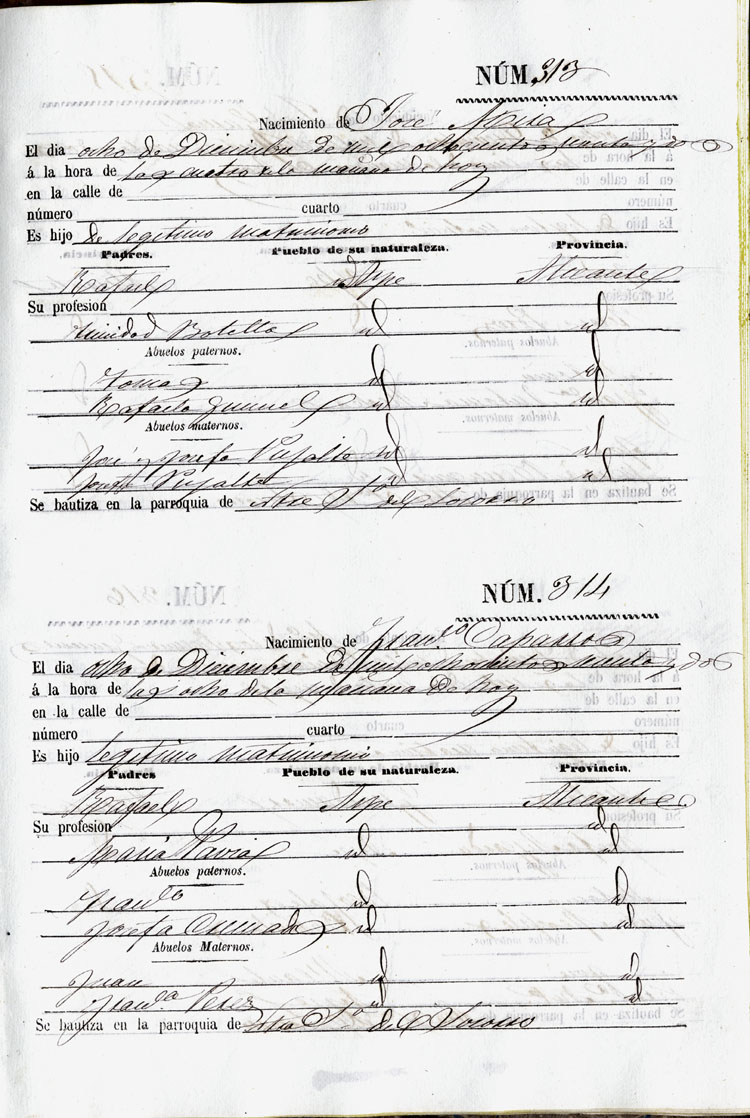 NÚM. 313
Nacimiento de José
El dia ocho de Diciembre de mil ochocientos y dos
á la hora de las cuatro de la mañana de hoy
en la calle de
número cuarto
Es hijo de legitimo matrimonio
Padres. Pueblo de su naturaleza. Provincia.
Rafael Aspe Alicante
Su profesion
Trinidad Botella id id
Abuelos paternos.
Tomas id id
Rafaela id id
Abuelos maternos.
José y Josefa Pujalte id id
Josefa Pujalte id id
Se bautiza en la parroquia de Ntra Sª del Socorro
NÚM. 314
Nacimiento de Franco
El dia ocho de Diciembre de mil ochocientos y dos
á la hora de las ocho de la mañana de hoy
en la calle de
número cuarto
Es hijo legitimo matrimonio
Padres Pueblo de su naturaleza. Provincia.
Rafael Aspe Alicante
Su profesion id
Maria Pavia id id
Abuelos paternos.
Franco id id
Josefa id id
Abuelos Maternos.
Juan id id
Franca Perez id id
Se bautiza en la parroquia de Ntra Sª del Socorro